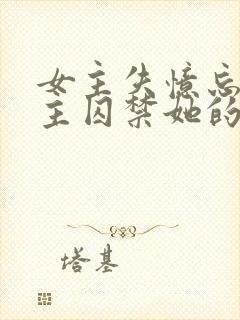 女主失憶忘
主囚禁她的
塔基